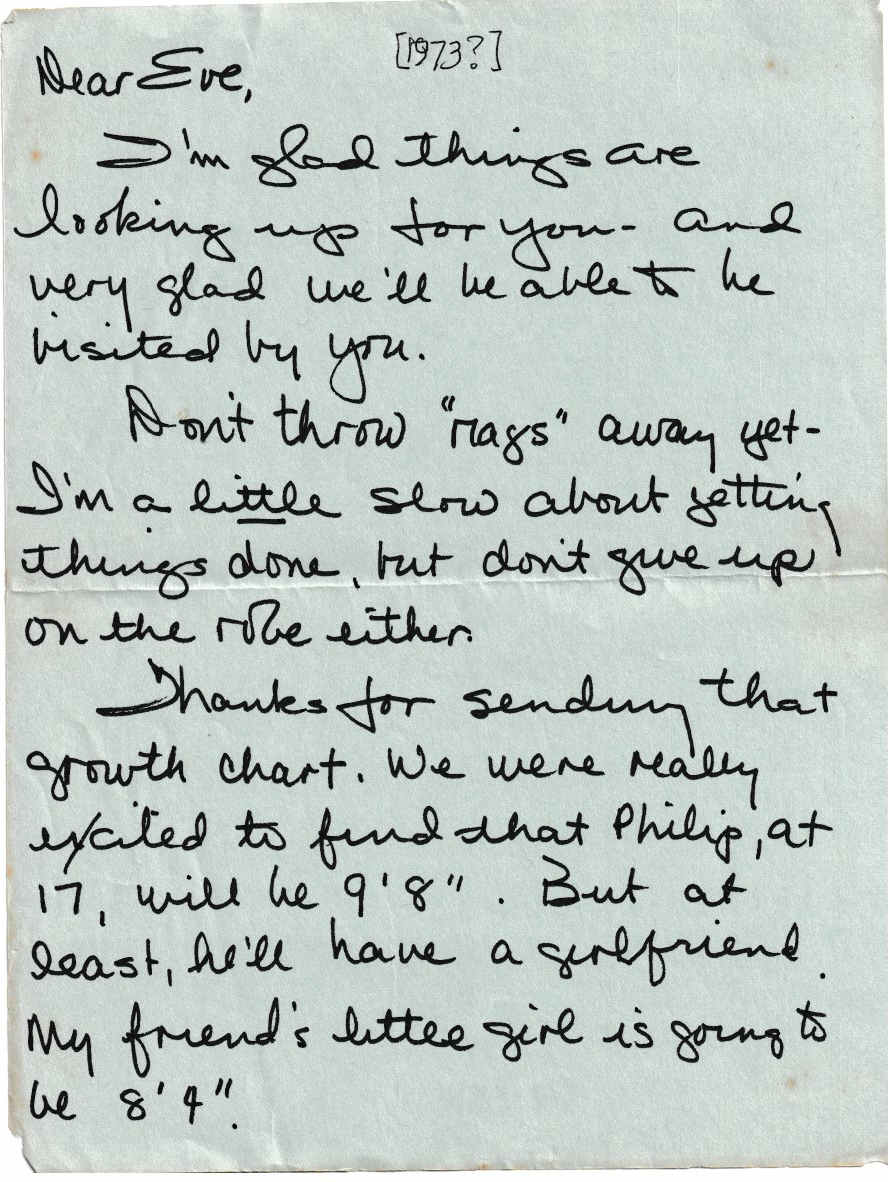 [1973?]
Dear Eve,
I'm glad things are
looking up for you - and
very glad we'll be able to be
visited by you.
Don't throw "rags" away yet -
I'm a little slow about getting
things done, but don't give up
on the robe either.
Thanks for sending that
growth chart. We were really
excited to find that Philip, at
17, will be 9'8". But at
least, he'll have a girlfriend.
My friend's little girl is going to
be 8'4".